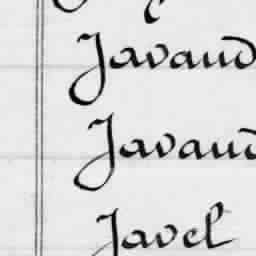 Javaud
Javaud
Javel